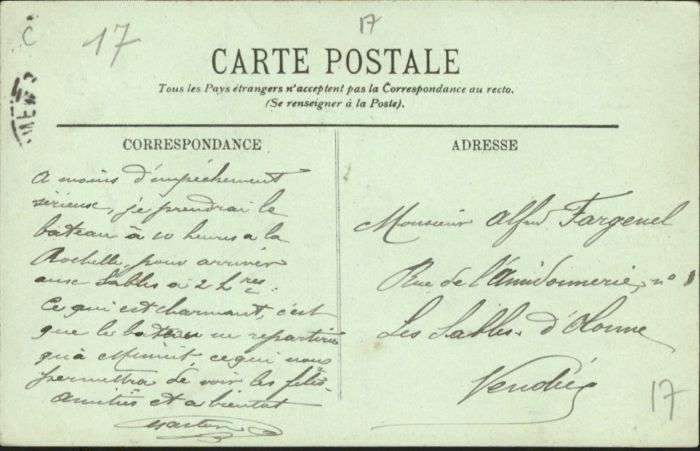 17
17
CARTE POSTALE
Tous les Pays étrangers n'acceptent pas la Correspondance au recto.
(Se renseigner à la Poste).
CORRESPONDANCE
A moins d'empêchement
sérieux, je prendrai le
bateau à 10 heures à la
Rochelle, pour arriver
aux Sables à 2 hres.
Ce qui est charmant, c'est
que le bateau ne repartira
qu'à Minuit, ce qui nous
permettra de voir les fêtes.
Amitiés et à bientôt
ADRESSE
Monsieur Alfred Fargenel
Rue de l'Amidonnerie, no
Les Sables d'Olonne
Vendée
17